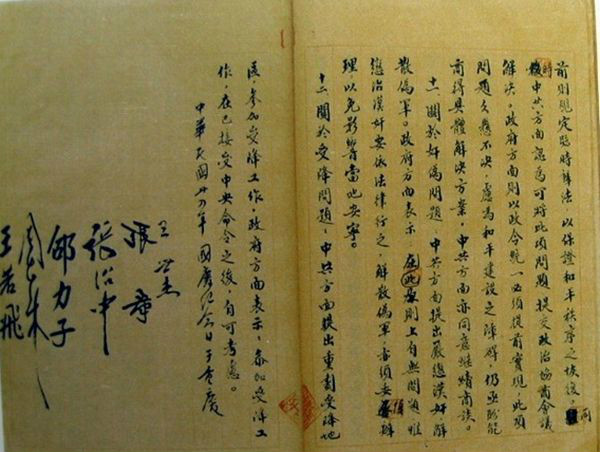 前則規定臨時辦法,以保證和平秩序之恢復。同
時中共方面認為可將此項問題提交政治協商會議
解決。政府方面則以政令統一必須提前實現,此項
問題久懸不決,慮為和平建設之障碍,仍亟盼能
商得具體解決方案。中共方面亦同意繼續商談。
十一、關於奸偽問題:中共方面提出嚴懲漢奸,解
散偽軍。政府方面表示:在此原則上自無問題,惟
懲治漢奸要依法律行之,解散偽軍,亦須妥慎辦
理,以免影響當地安寧。
十二、關於受降問題:中共方面提出重劃受降地
區,參加受降工作。政府方面表示:參加受降工
作,在已接受中央命令之後,自可考慮。
中華民國卅四年國慶紀念日于重慶
王世杰
張羣
張治中
邵力子
周恩來
王若飛